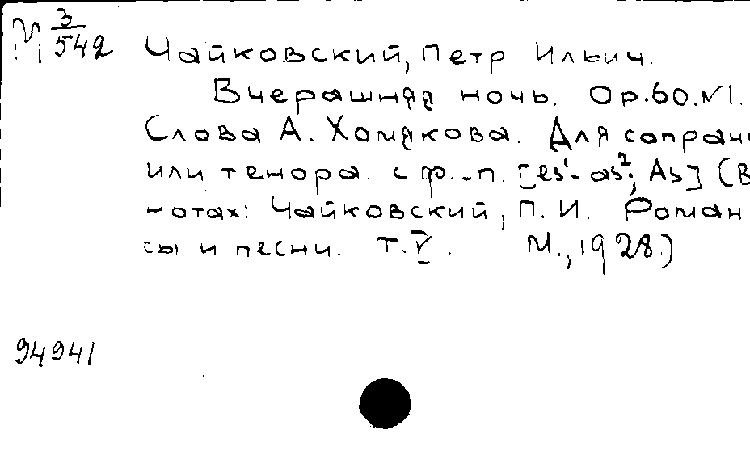 М 3/542 Чайковский, Петр Ильич.
Вчерашняя ночь. Op.60.N1.
Слова А. Хомякова. Для сопрано
или тенора с ф.-п. [es¹-as²; As] (В
нотах: Чайковский, П. И. Роман
сы и песни. Т.V. М., 1928.)
94941